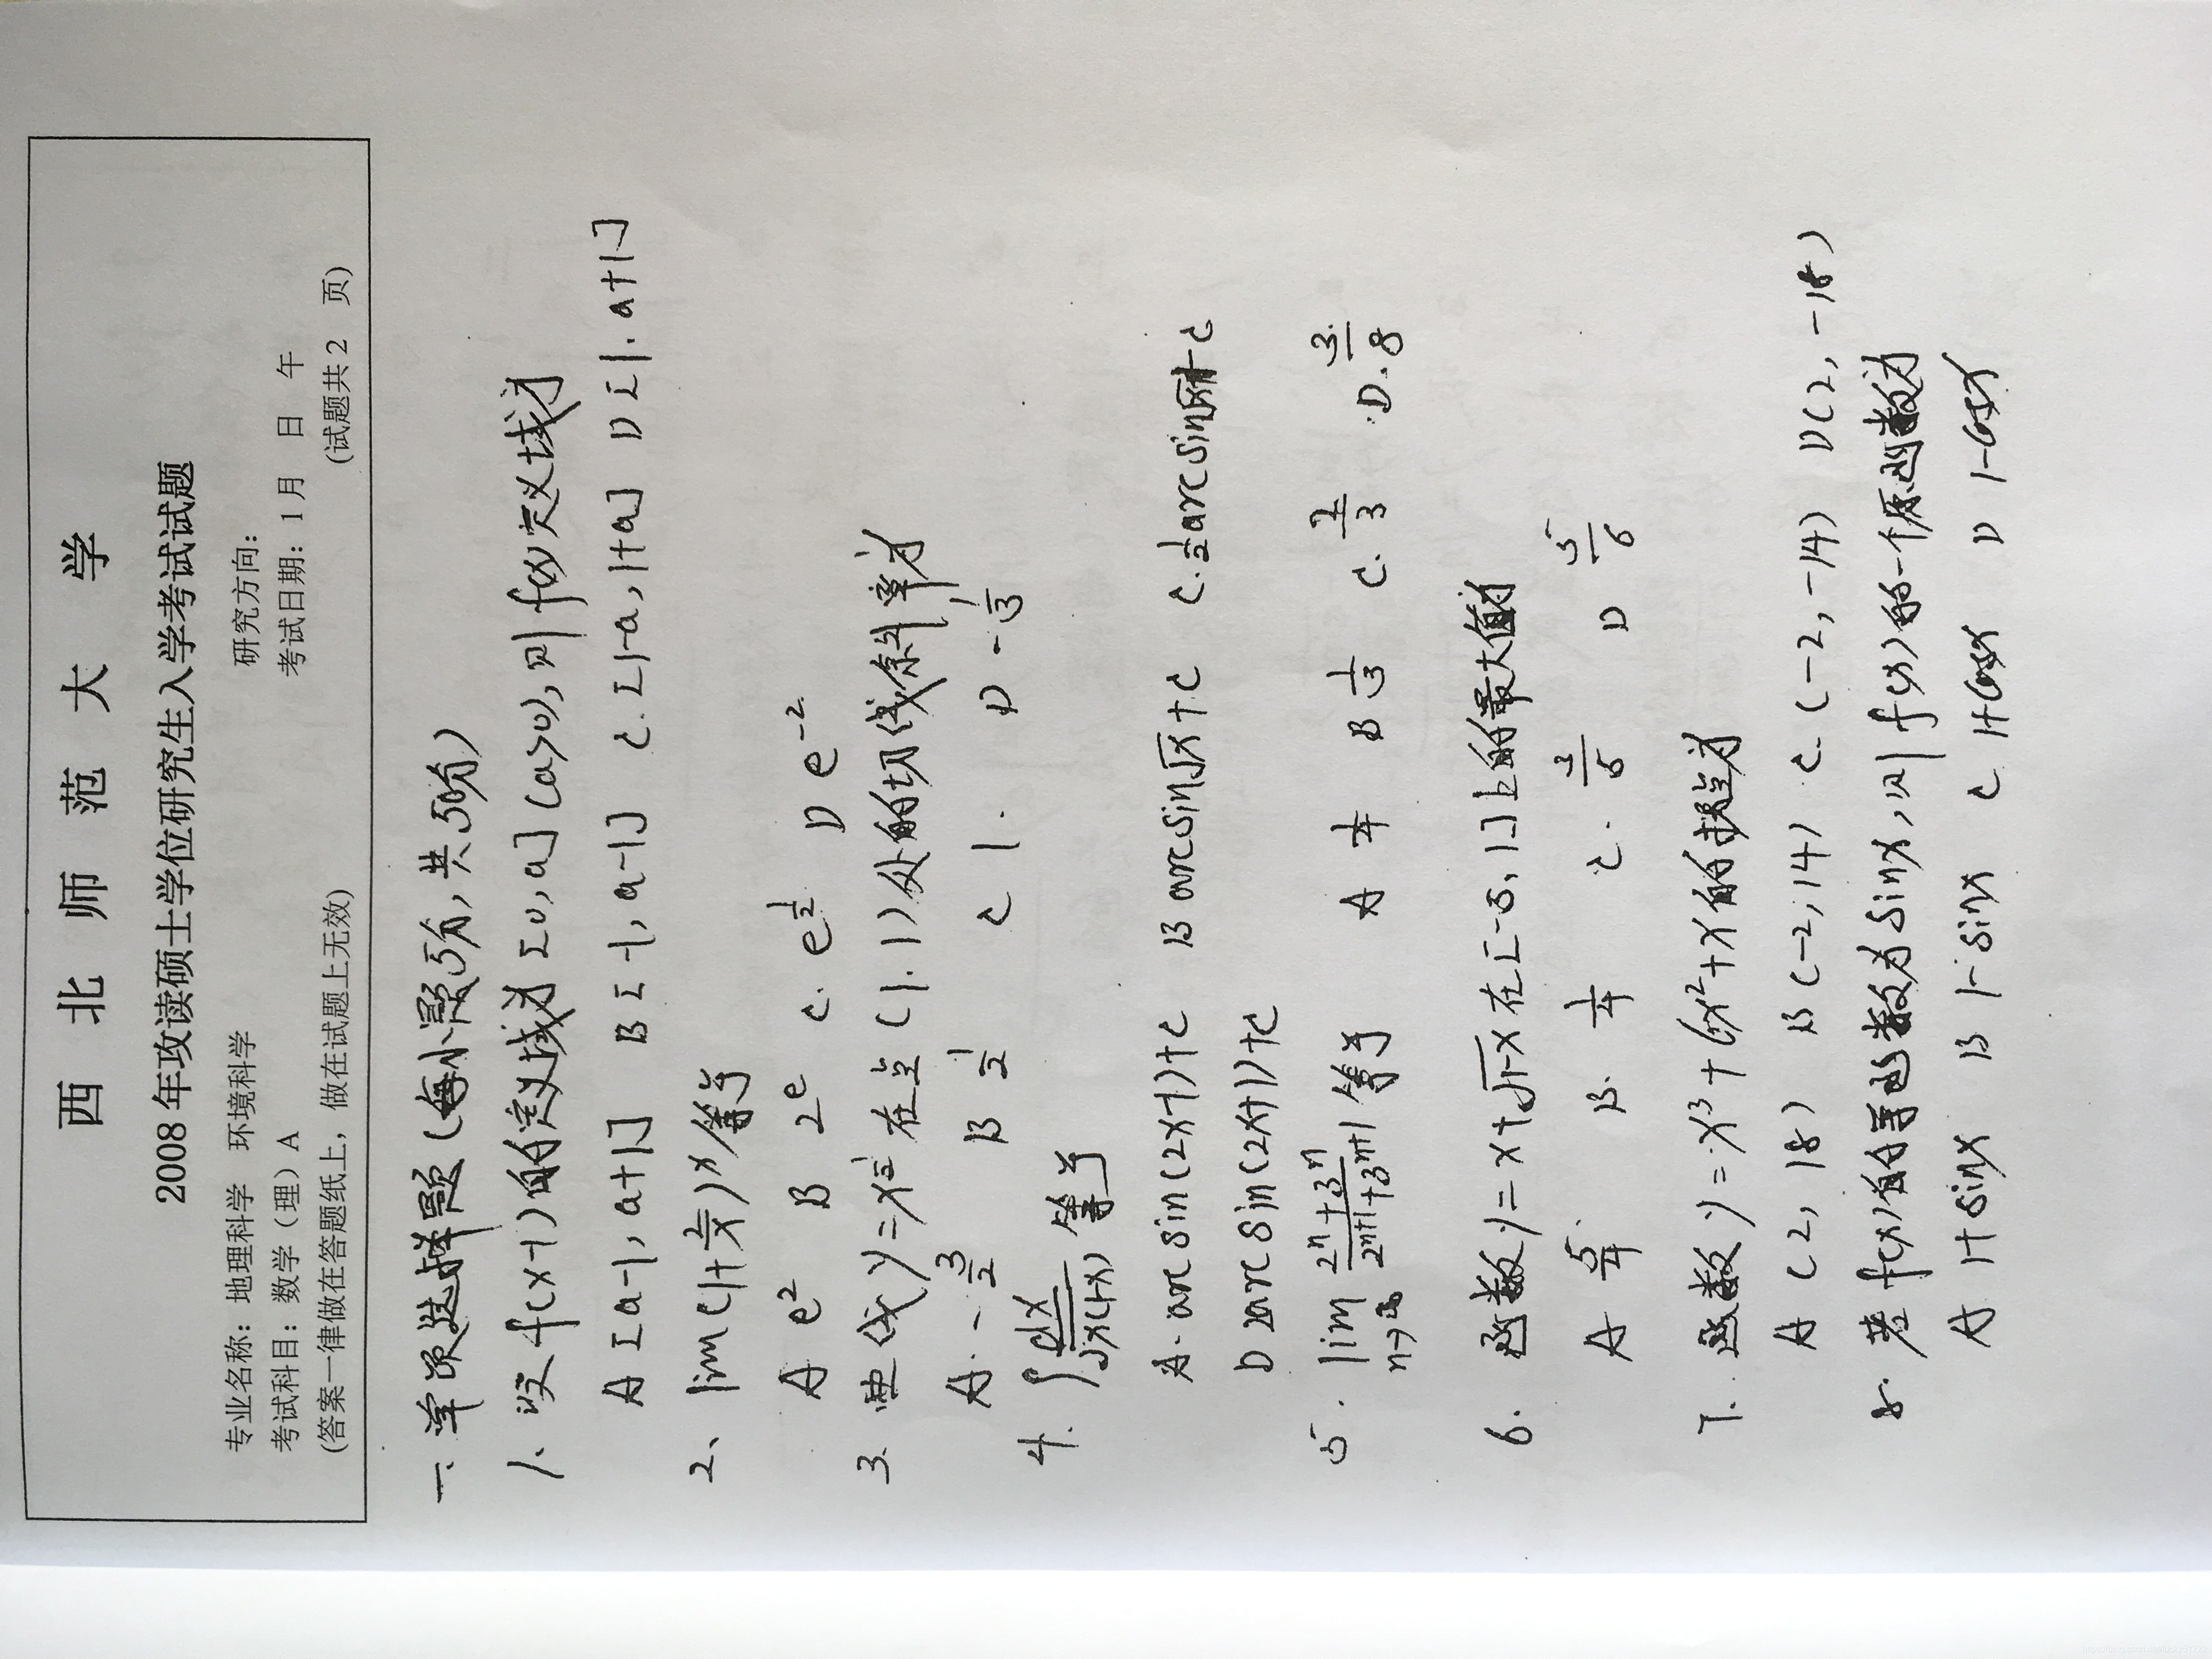 西 北 师 范 大 学
2008 年攻读硕士学位研究生入学考试试题
专业名称：地理科学 环境科学 研究方向：
考试科目：数学（理）A 考试日期：1 月 日 午
(答案一律做在答题纸上，做在试题上无效) (试题共 2 页)
一. 单项选择题 (每小题5分, 共50分)
1、设 f(x-1) 的定义域为 [0, a] (a>0), 则 f(x) 定义域为
A [a-1, a+1] B [-1, a-1] C. [1-a, 1+a] D [1. a+1]
2、 lim (1+ 2/x)^x 等于
A e² B 2e C. e^½ D e^-2
3. 曲线 y = x^½ 在点 (1.1) 处的切线斜率为
A. -3/2 B 1/2 C 1. D -1/3
4. ∫ dx/√x(1-x) 等于
A. arc sin(2x-1)+C B arcsin√x+C C. ½arcsin√x+C
D 2arc sin(2x+1)+C
5. lim n→∞ 2ⁿ+3ⁿ/2ⁿ⁺¹+3ⁿ⁺¹ 等于 A 1/4 B 1/3 C. 2/3 D. 3/8
6. 函数 y = x+√1-x 在 [-5, 1] 上的最大值为
A 5/4 B. 1/4 C. D 5/6
7. 函数 y = x³ + 6x²+x 的拐点为
A (2, 18) B (-2, 14) C. (-2, -14) D (2, -18)
8. 若 f(x) 的导函数为 sinx, 则 f(x) 的一个原函数为
A 1+sinx B 1-sinx C 1+cosx D 1-cosx